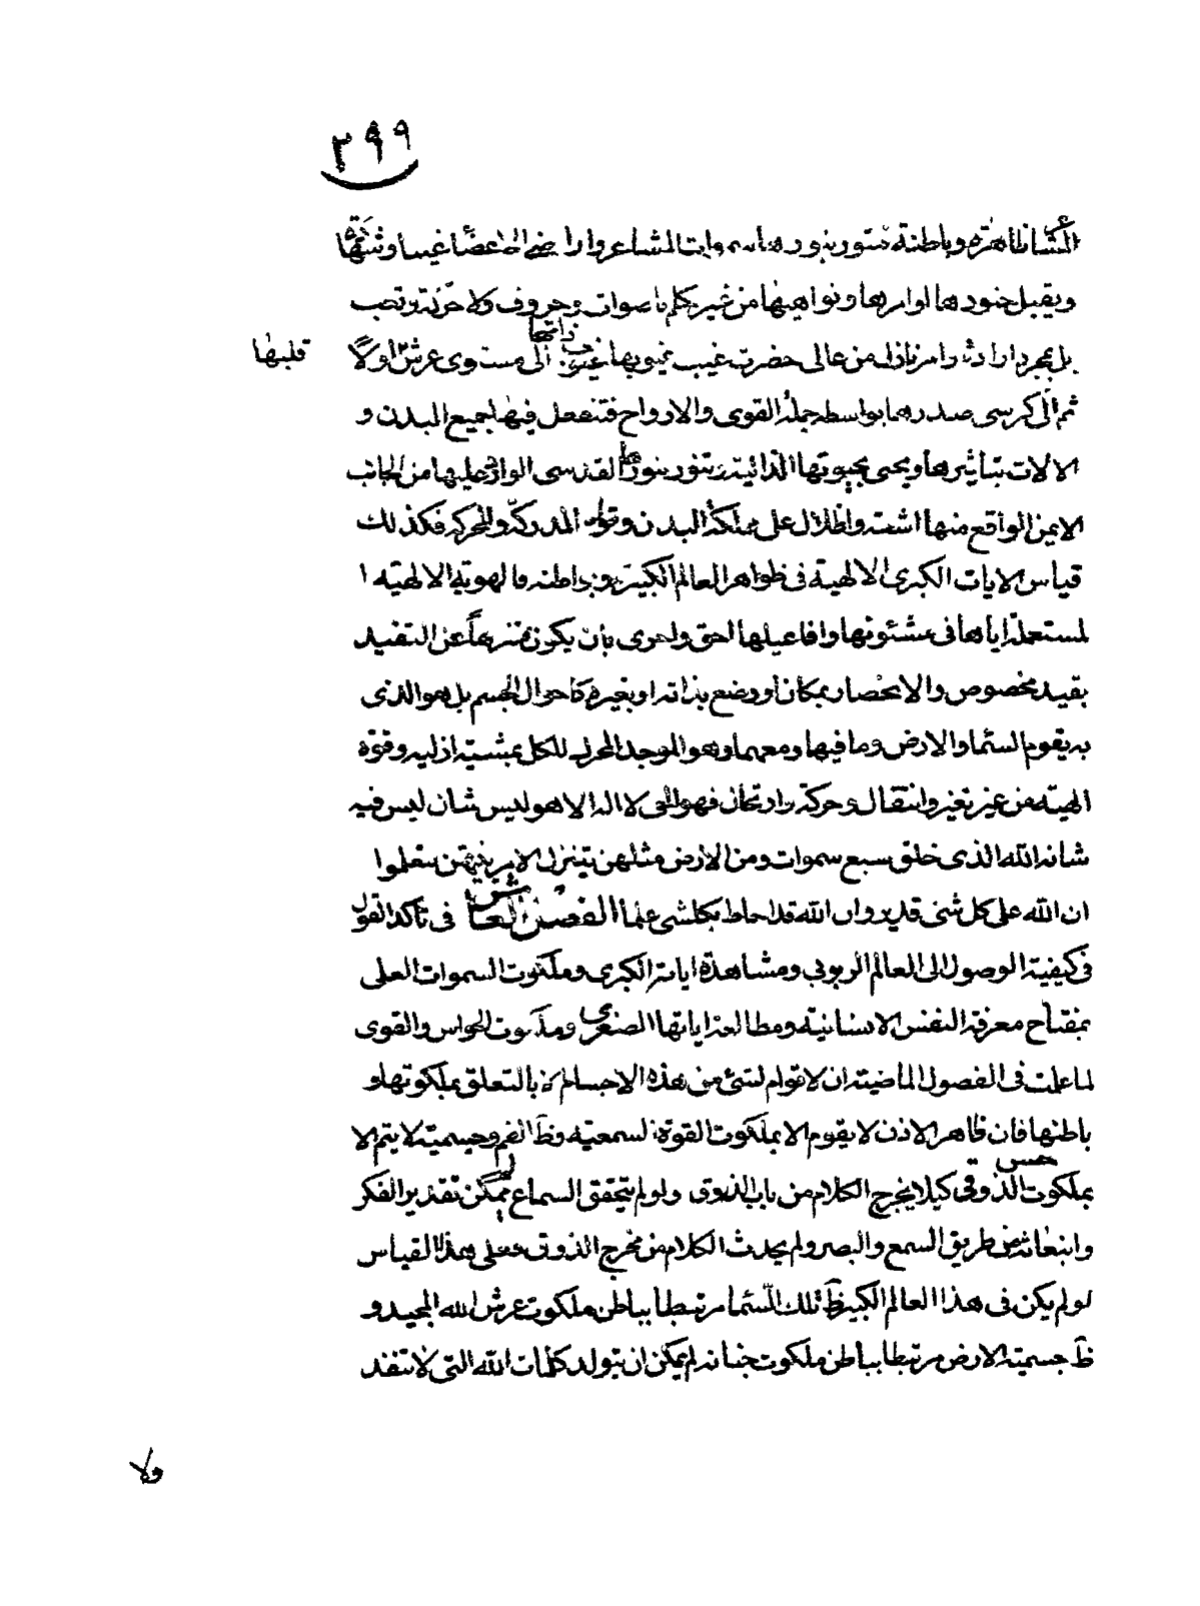 ٣٩٩
ظاهرة وباطنة تتنور بنورها سموات المشاعر واراضى الاعضا غيبا و
ويقبل جنودها اوامرها ونواهيها من غير تكلم باصوات وحروف ولا حركة وتعب
بل بمجرد ارادة وامر نازل من عالى حضرت غيب غيوبها ذاتها الى مستوى عرش اولا قلبها
ثم الى كرسى صدرها بواسطه جملة القوى والارواح فتنفعل فيها جميع البدن و
الالات بتاثيرها ويحيى بحيوتها الذاتية وتتنور بنورها القدسى الوارد عليها من الجانب
الايمن الواقع منها اشعة واظلال على مملكة البدن وقواه المدركة والمحركه فكذلك
قياس الايات الكبرى الالهية فى ظواهر العالم الكبير وبواطنه فالهوية الالهية ا
لمستعملة اياها فى شئونها وافاعيلها احق واحرى بان يكون متنزها عن التقيد
بقيد مخصوص والانحصار بمكان او وضع بذاته او بغيره كاحوال الجسم بل هو الذى
به يقوم السما والارض وما فيها ومعهما وهو الموجد المحرك للكل بمشية ازليه وقوة
الهية من غير تغير وانتقال وحركة وارتحال فهو الحى لا اله الا هو ليس شان ليس فيه
شانه الله الذى خلق سبع سموات ومن الارض مثلهن يتنزل الامر بينهن لتعلموا
ان الله على كل شئ قدير وان الله قد احاط بكلشى علما الفصل العاشر فى تاكد القول
فى كيفية الوصول الى العالم الربوبى ومشاهدة اياته الكبرى وملكوت السموات العلى
بمفتاح معرفة النفس الانسانية ومطالعة اياتها الصغرى وملكوت الحواس والقوى
لما علمت فى الفصول الماضية ان لا قوام لشئ من هذه الاجسام الا بالتعلق بملكوتها و
باطنها فان ظاهر الاذن لا يقوم الا بملكوت القوة السمعية وظ الفم وجسميته لا يتم الا
بملكوت حس الذوقى كيلا يخرج الكلام من باب الذوق ولو لم يتحقق السماع لم يمكن تقدير الفكر
وانبعاثه من طريق السمع والبصر ولم يحدث الكلام من مخرج الذوق وعلى هذا القياس
لو لم يكن فى هذا العالم الكبير ظ تلك السما مرتبطا بباطن ملكوت عرش الله المجيد و
ظ جسمية الارض مرتبطا بباطن ملكوت جنانه لم يمكن ان يتولد كلمات الله التى لا تنفد
ولا